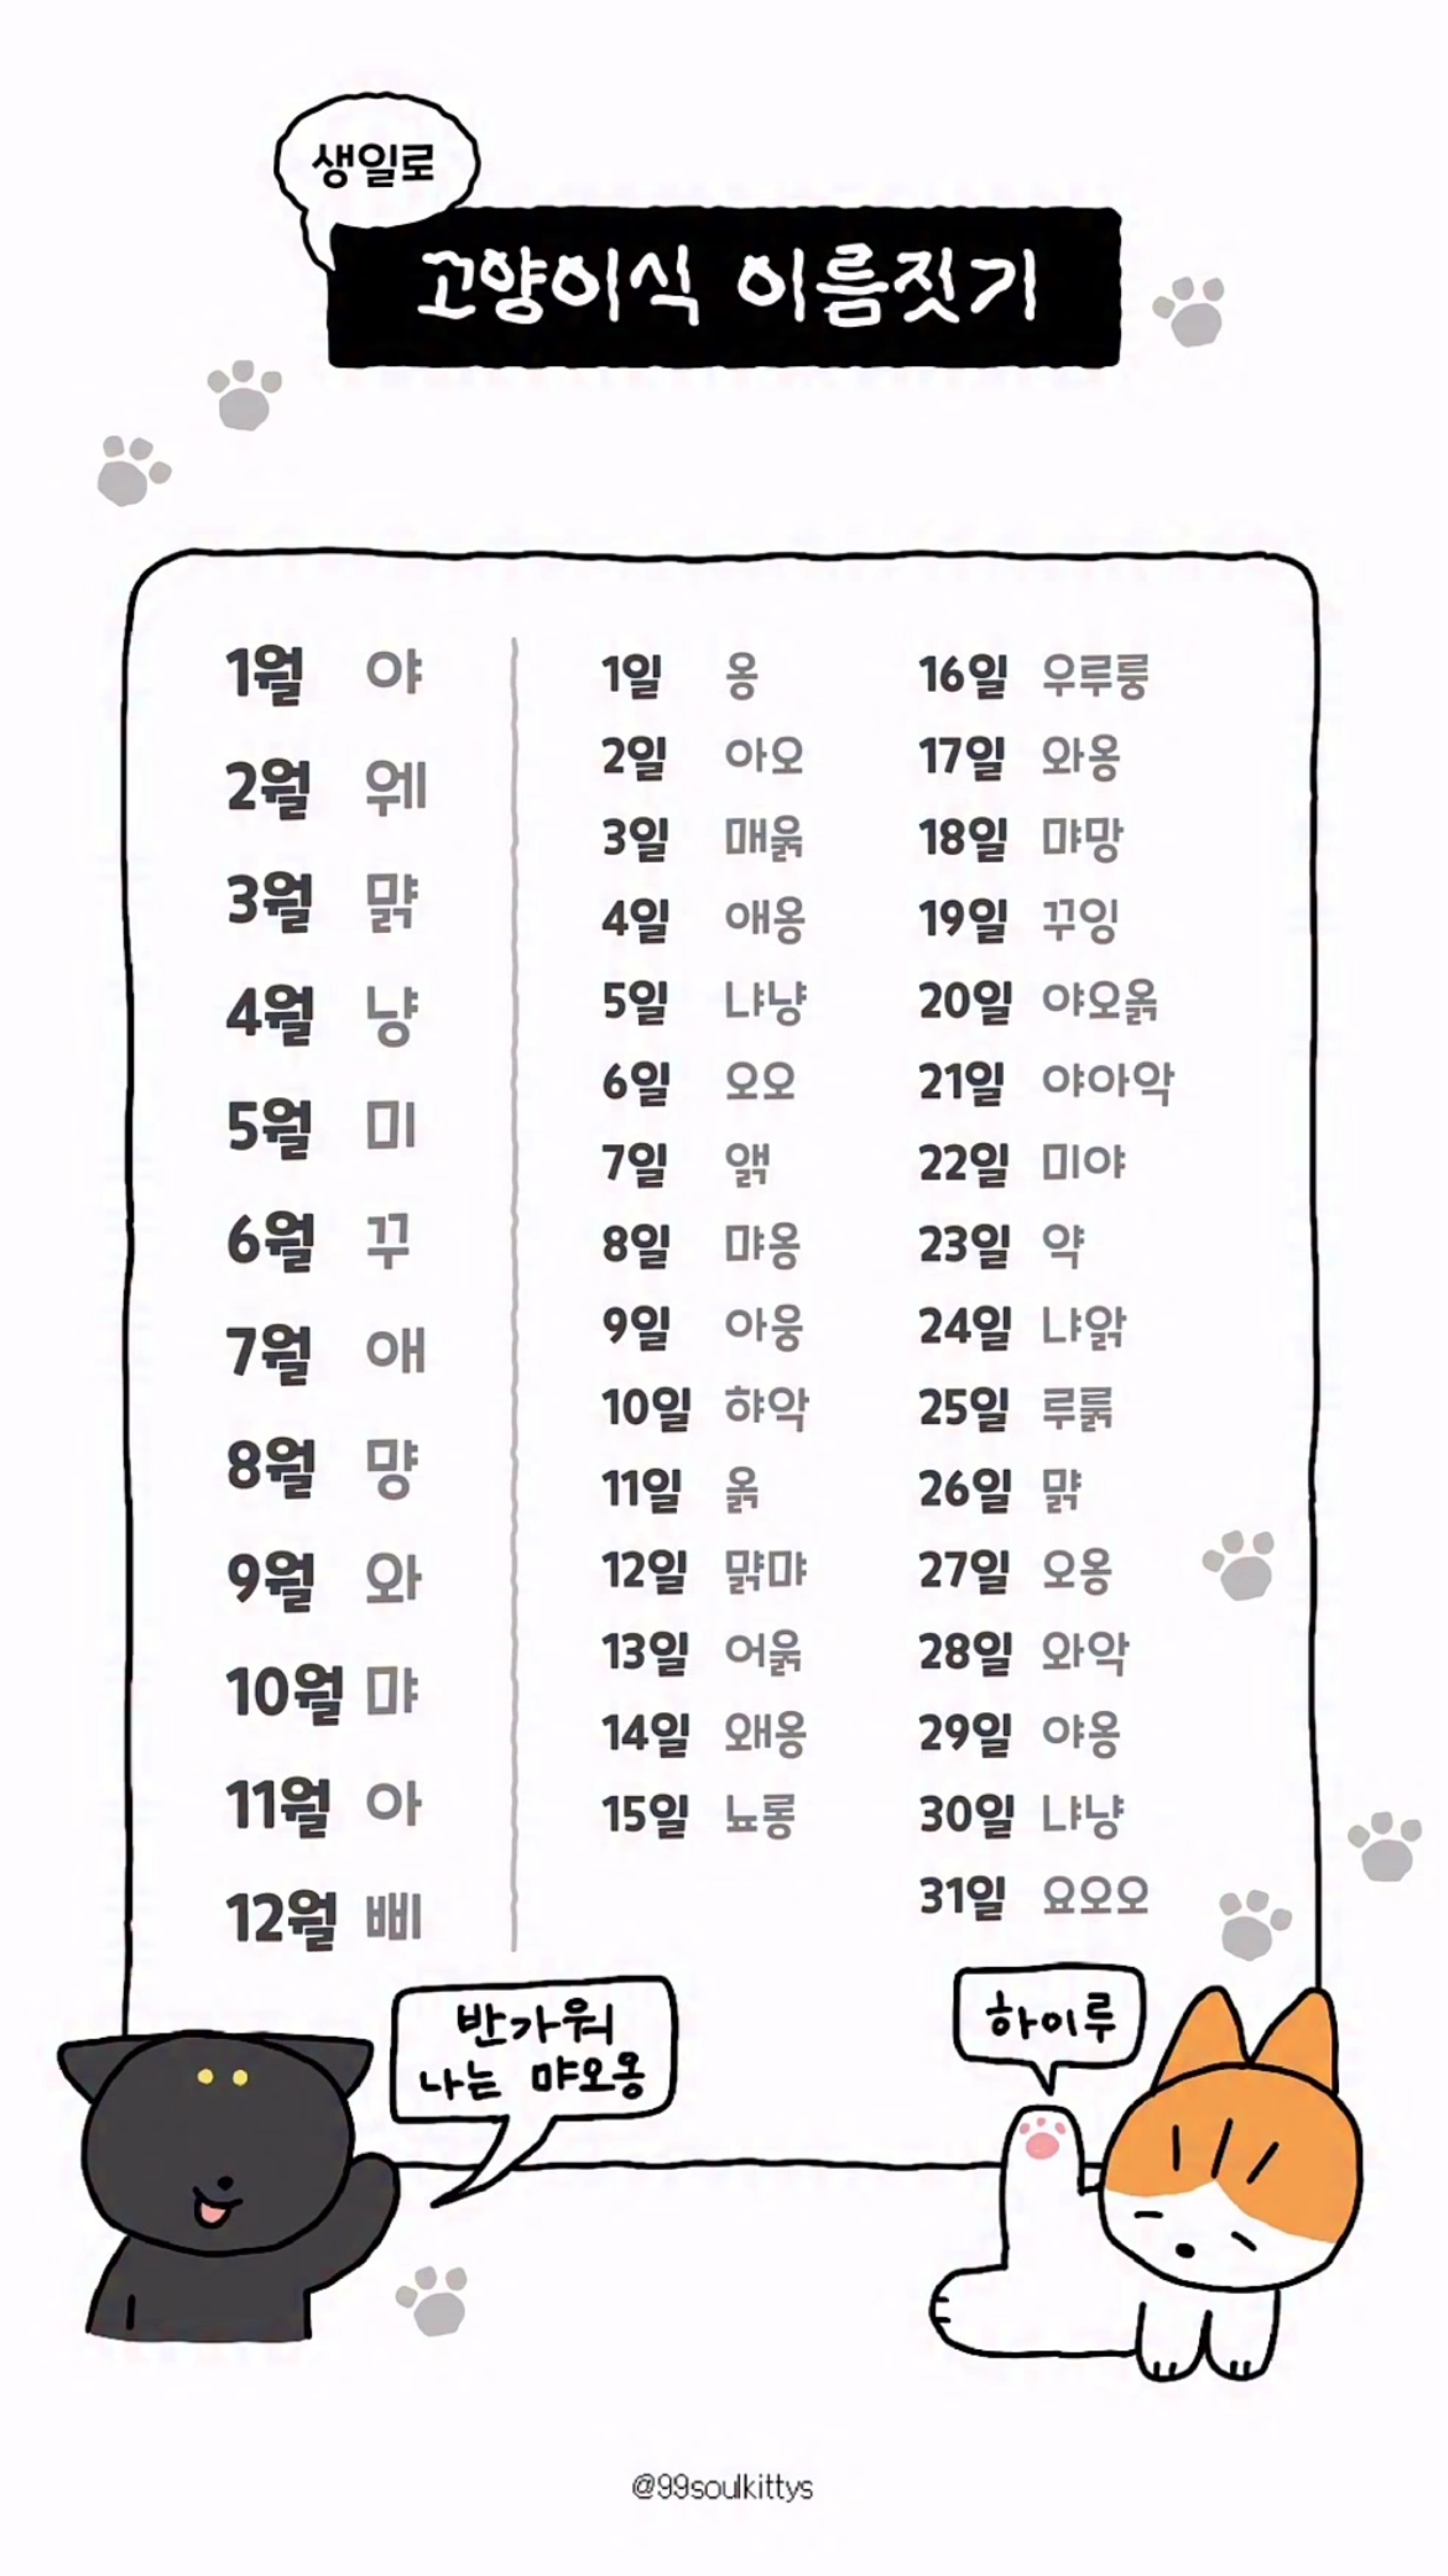 생일로
고양이식 이름짓기
1월 야
2월 웨
3월 먉
4월 냥
5월 미
6월 꾸
7월 애
8월 먕
9월 와
10월 먀
11월 아
12월 삐
1일 옹
2일 아오
3일 매욹
4일 애옹
5일 냐냥
6일 오오
7일 앩
8일 먀옹
9일 아웅
10일 햐악
11일 옭
12일 먉먀
13일 어욹
14일 왜옹
15일 뇨롱
16일 우루룽
17일 와옹
18일 먀망
19일 꾸잉
20일 야오옭
21일 야아악
22일 미야
23일 약
24일 냐앍
25일 루룱
26일 먉
27일 오옹
28일 와악
29일 야옹
30일 냐냥
31일 요오오
반가워
나는 먀오옹
하이루
@99soulkittys